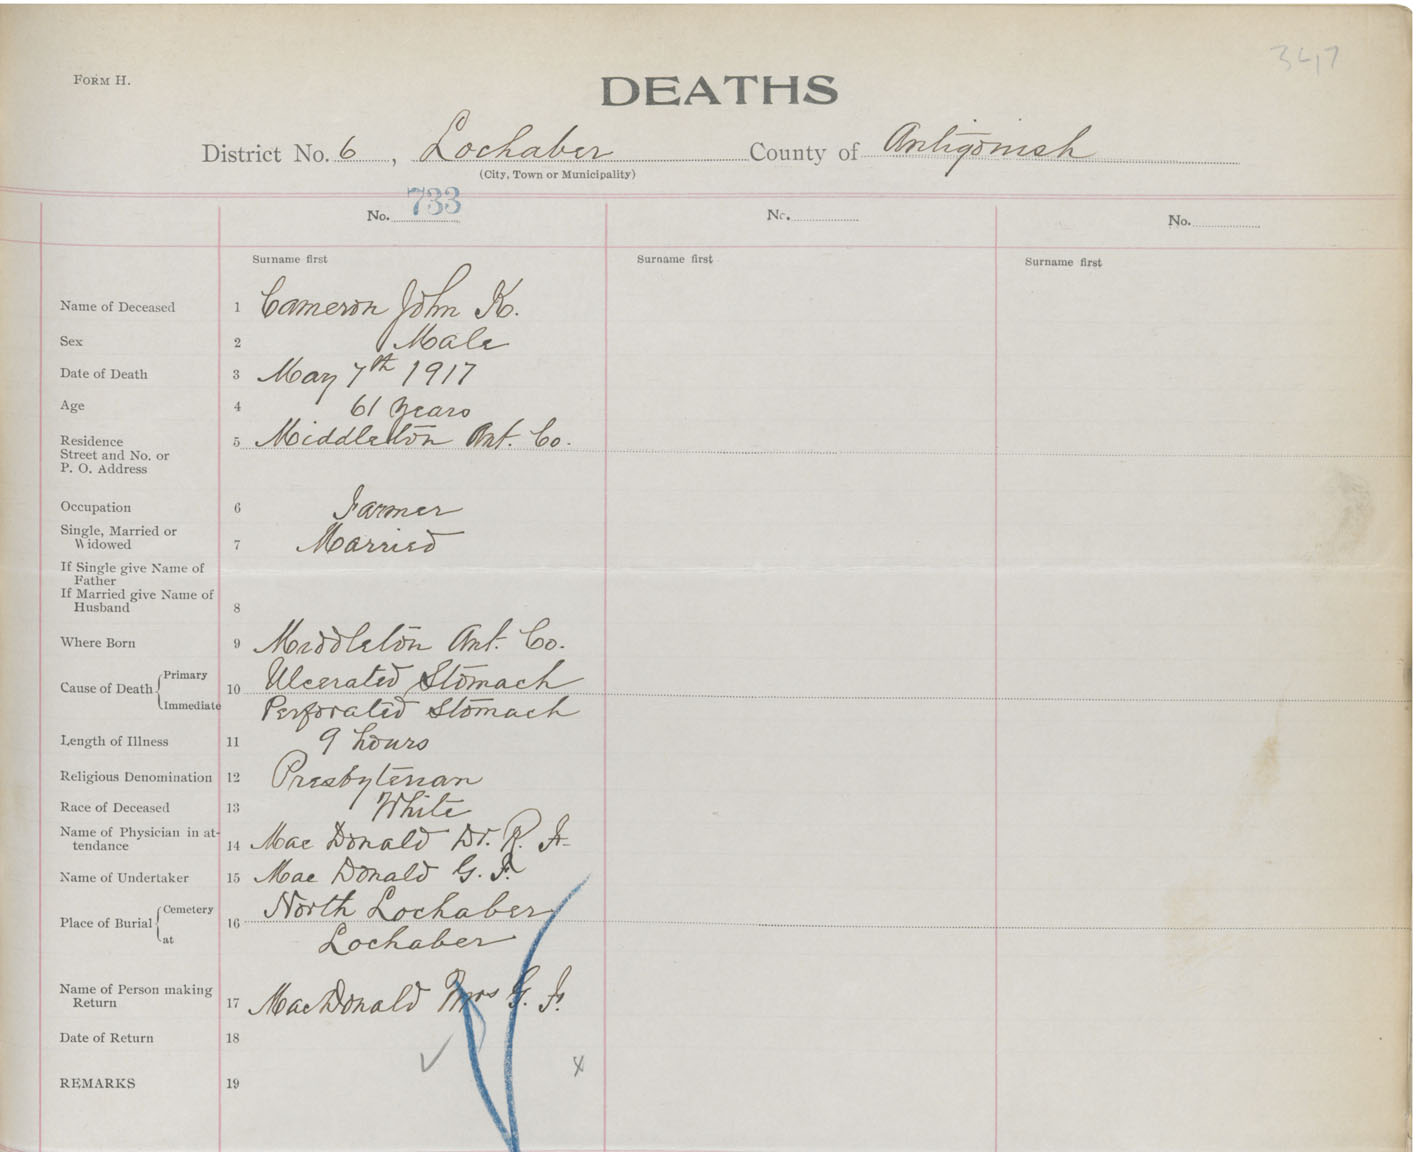 347
FORM H.
DEATHS
District No. 6, Lochaber County of Antigonish
(City, Town or Municipality)
No. 733 No. No.
Surname first Surname first Surname first
Name of Deceased 1 Cameron John K.
Sex 2 Male
Date of Death 3 May 7th 1917
Age 4 61 Years
Residence 5 Middleton Ant. Co.
Street and No. or
P. O. Address
Occupation 6 Farmer
Single, Married or
Widowed 7 Married
If Single give Name of
Father
If Married give Name of
Husband 8
Where Born 9 Middleton Ant. Co.
Cause of Death 10 Primary Ulcerated Stomach
Immediate Perforated Stomach
Length of Illness 11 9 hours
Religious Denomination 12 Presbyterian
Race of Deceased 13 White
Name of Physician in at-
tendance 14 Mac Donald Dr. R. F.
Name of Undertaker 15 Mac Donald G. F.
Place of Burial 16 Cemetery North Lochaber
at Lochaber
Name of Person making
Return 17 MacDonald Mrs G. F.
Date of Return 18
REMARKS 19